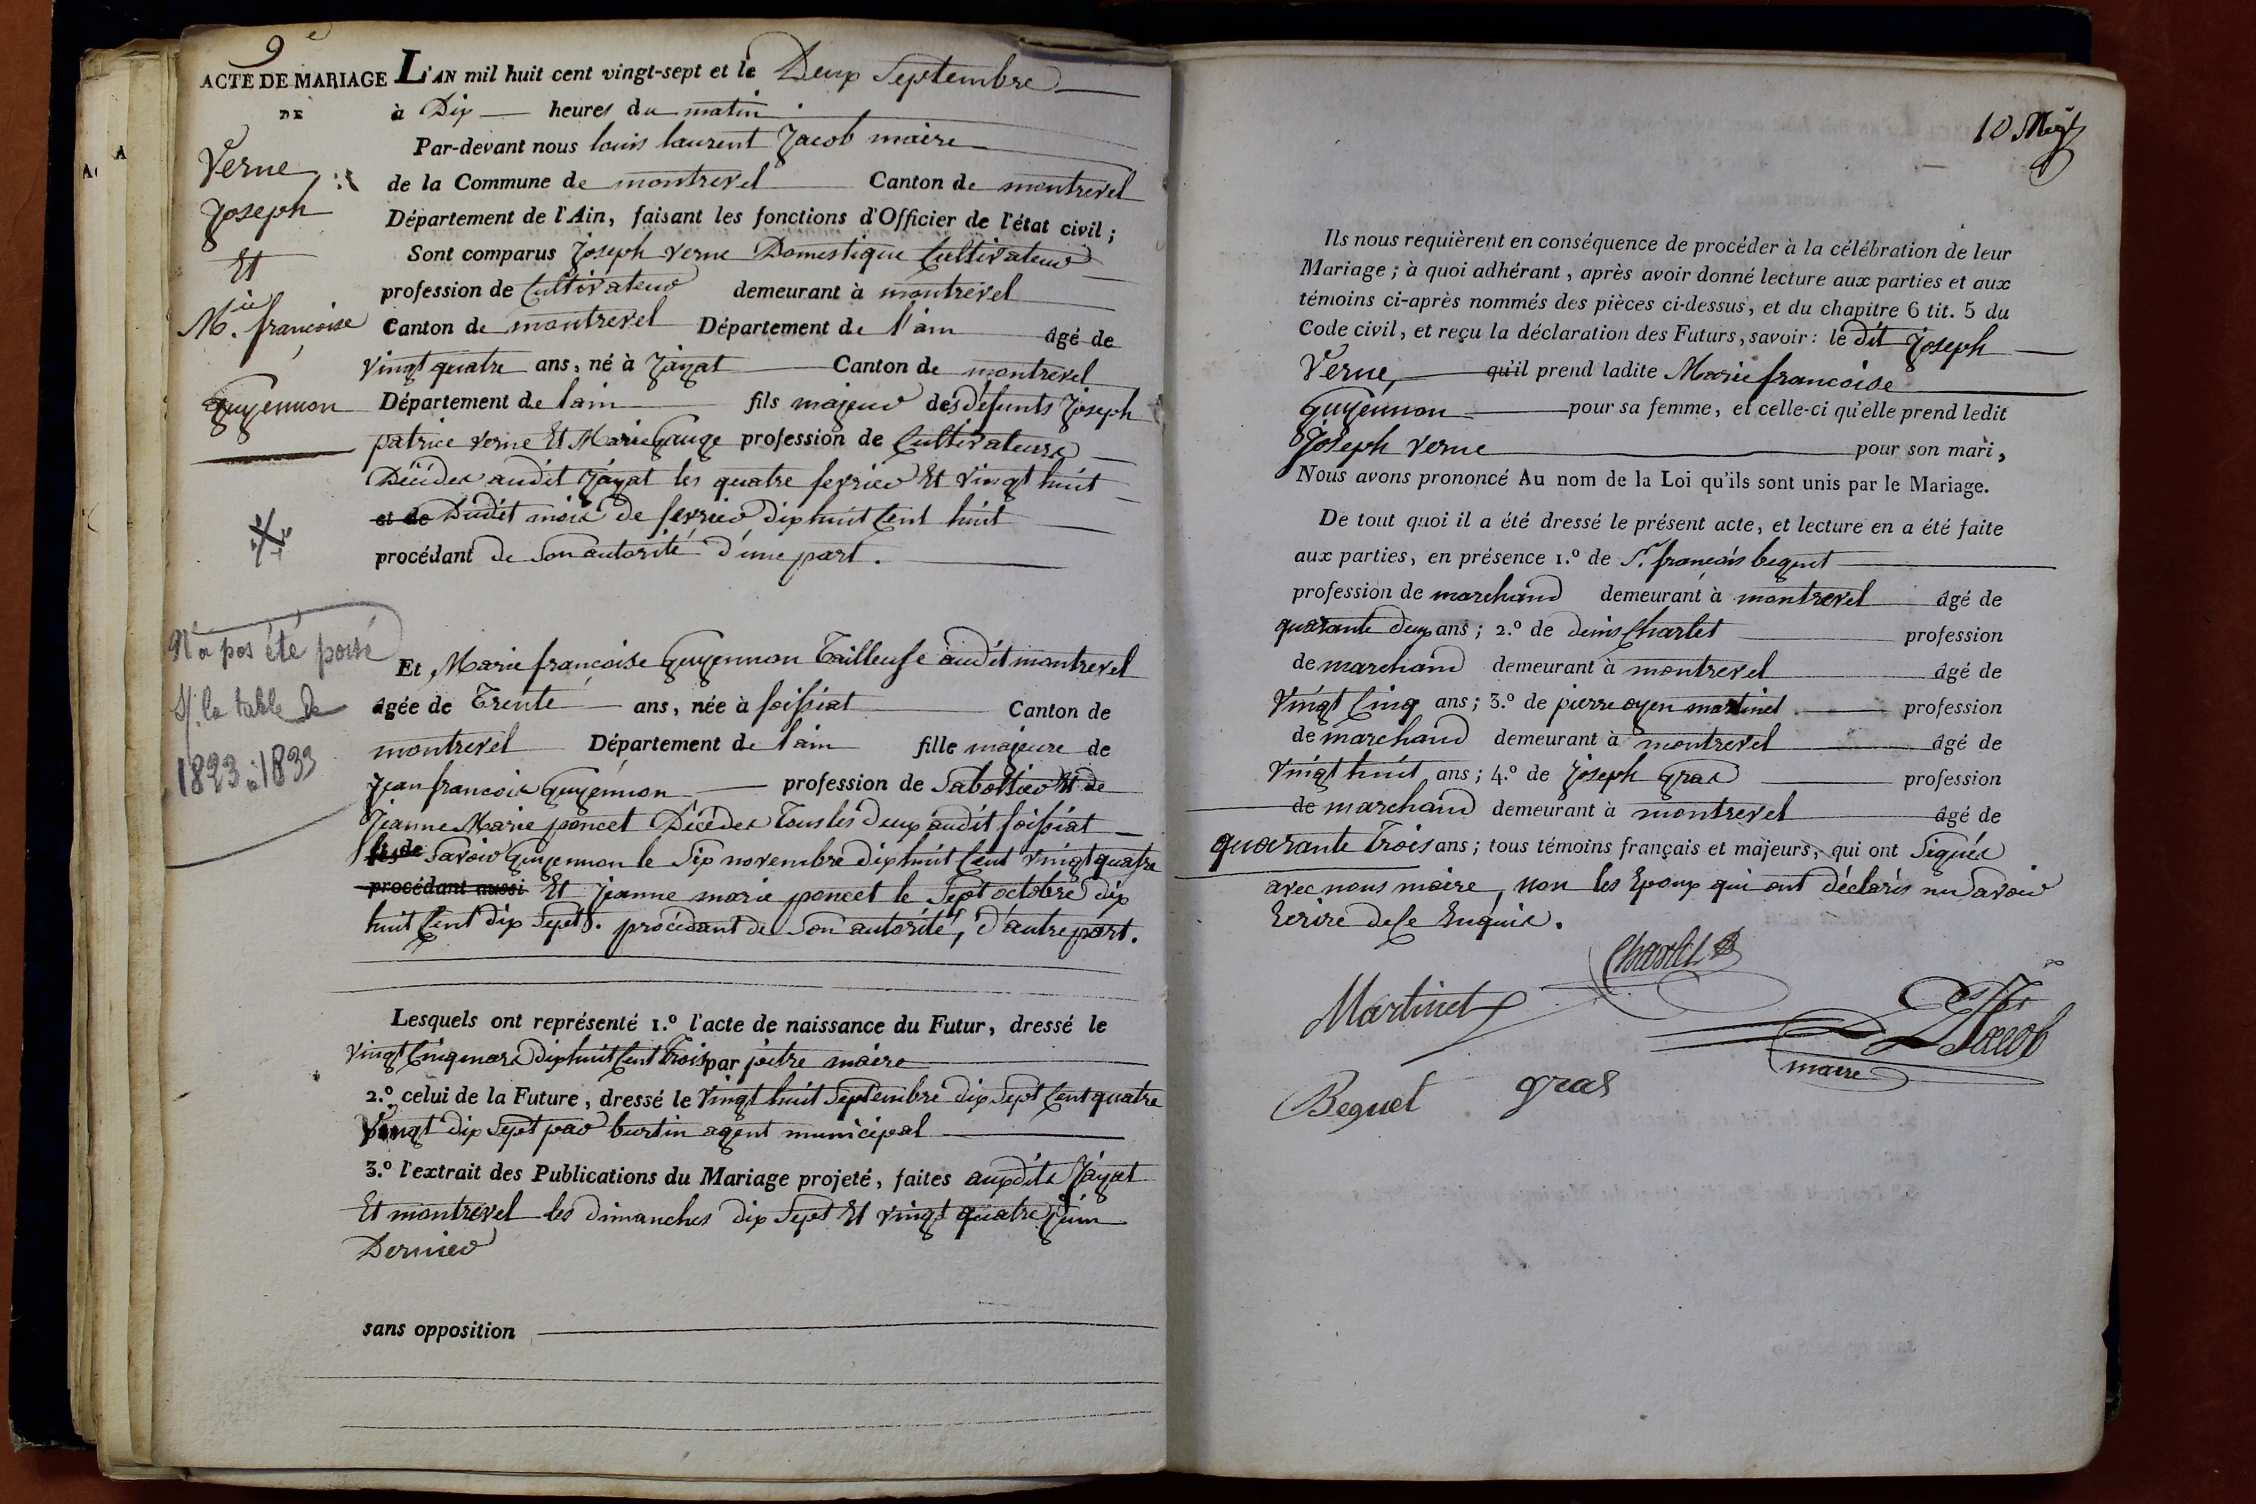 9e
ACTE DE MARIAGE
DE
Verne
Joseph
Et
Mie françoise
Guyennon
N'a pas été porté
s/. la table de
1823 à 1833
L'AN mil huit cent vingt-sept et le Deux Septembre
à Dix heures du matin
Par-devant nous louis laurent Jacob maire
de la Commune de montrevel Canton de montrevel
Département de l'Ain, faisant les fonctions d'Officier de l'état civil ;
Sont comparus Joseph verne Domestique Cultivateur
profession de Cultivateur demeurant à montrevel
Canton de montrevel Département de l'ain âgé de
vingt quatre ans, né à Jayat Canton de montrevel
Département de l'ain fils majeur des défunts Joseph
patrice verne Et Marie Gauge profession de Cultivateurs
Décédés audit Jayat les quatre fevrier Et vingt huit
et de Dudit mois de fevrier dix huit Cent huit
procédant de Son autorité d'une part.
Et Marie francoise Guyennon Tailleuse audit montrevel
âgée de Trente ans, née à foissiat Canton de
montrevel Département de l'ain fille majeure de
Jean francois Guyennon profession de Sabottier Et de
Jeanne Marie poncet Décédés Tous les deux audit foissiat
Savoir Guyennon le Six novembre dix huit Cent vingt quatre
procédant aussi Et Jeanne marie poncet le Sept octobre dix
huit Cent dix Sept. procédant de Son autorité, d'autre part.
Lesquels ont représenté 1.º l'acte de naissance du Futur, dressé le
vingt Cinq mars dix huit Cent Trois par joitre maire
2.º celui de la Future, dressé le vingt huit Septembre dix Sept Cent quatre
vingt dix Sept par burtin agent municipal
3.º l'extrait des Publications du Mariage projeté, faites auxdits Jayat
Et montrevel les dimanches dix Sept Et vingt quatre juin
Dernier
sans opposition
10
Ils nous requièrent en conséquence de procéder à la célébration de leur
Mariage ; à quoi adhérant, après avoir donné lecture aux parties et aux
témoins ci-après nommés des pièces ci-dessus, et du chapitre 6 tit. 5 du
Code civil, et reçu la déclaration des Futurs, savoir : le dit Joseph
Verne qu'il prend ladite Marie francoise
Guyennon pour sa femme, et celle-ci qu'elle prend ledit
Joseph verne pour son mari,
Nous avons prononcé Au nom de la Loi qu'ils sont unis par le Mariage.
De tout quoi il a été dressé le présent acte, et lecture en a été faite
aux parties, en présence 1.º de Sr. françois bequet
profession de marchand demeurant à montrevel âgé de
quarante deux ans ; 2.º de denis Charlet profession
de marchand demeurant à montrevel âgé de
vingt Cinq ans ; 3.º de pierre oyen martinet profession
de marchand demeurant à montrevel âgé de
vingt huit ans ; 4.º de Joseph Gras profession
de marchand demeurant à montrevel âgé de
quarante Trois ans ; tous témoins français et majeurs, qui ont Signés
avec nous maire, non les Epoux qui ont déclarés ne Savoir
Ecrire de ce Enquis.
Charlet
Martinet
Jacob
maire
Bequet
gras